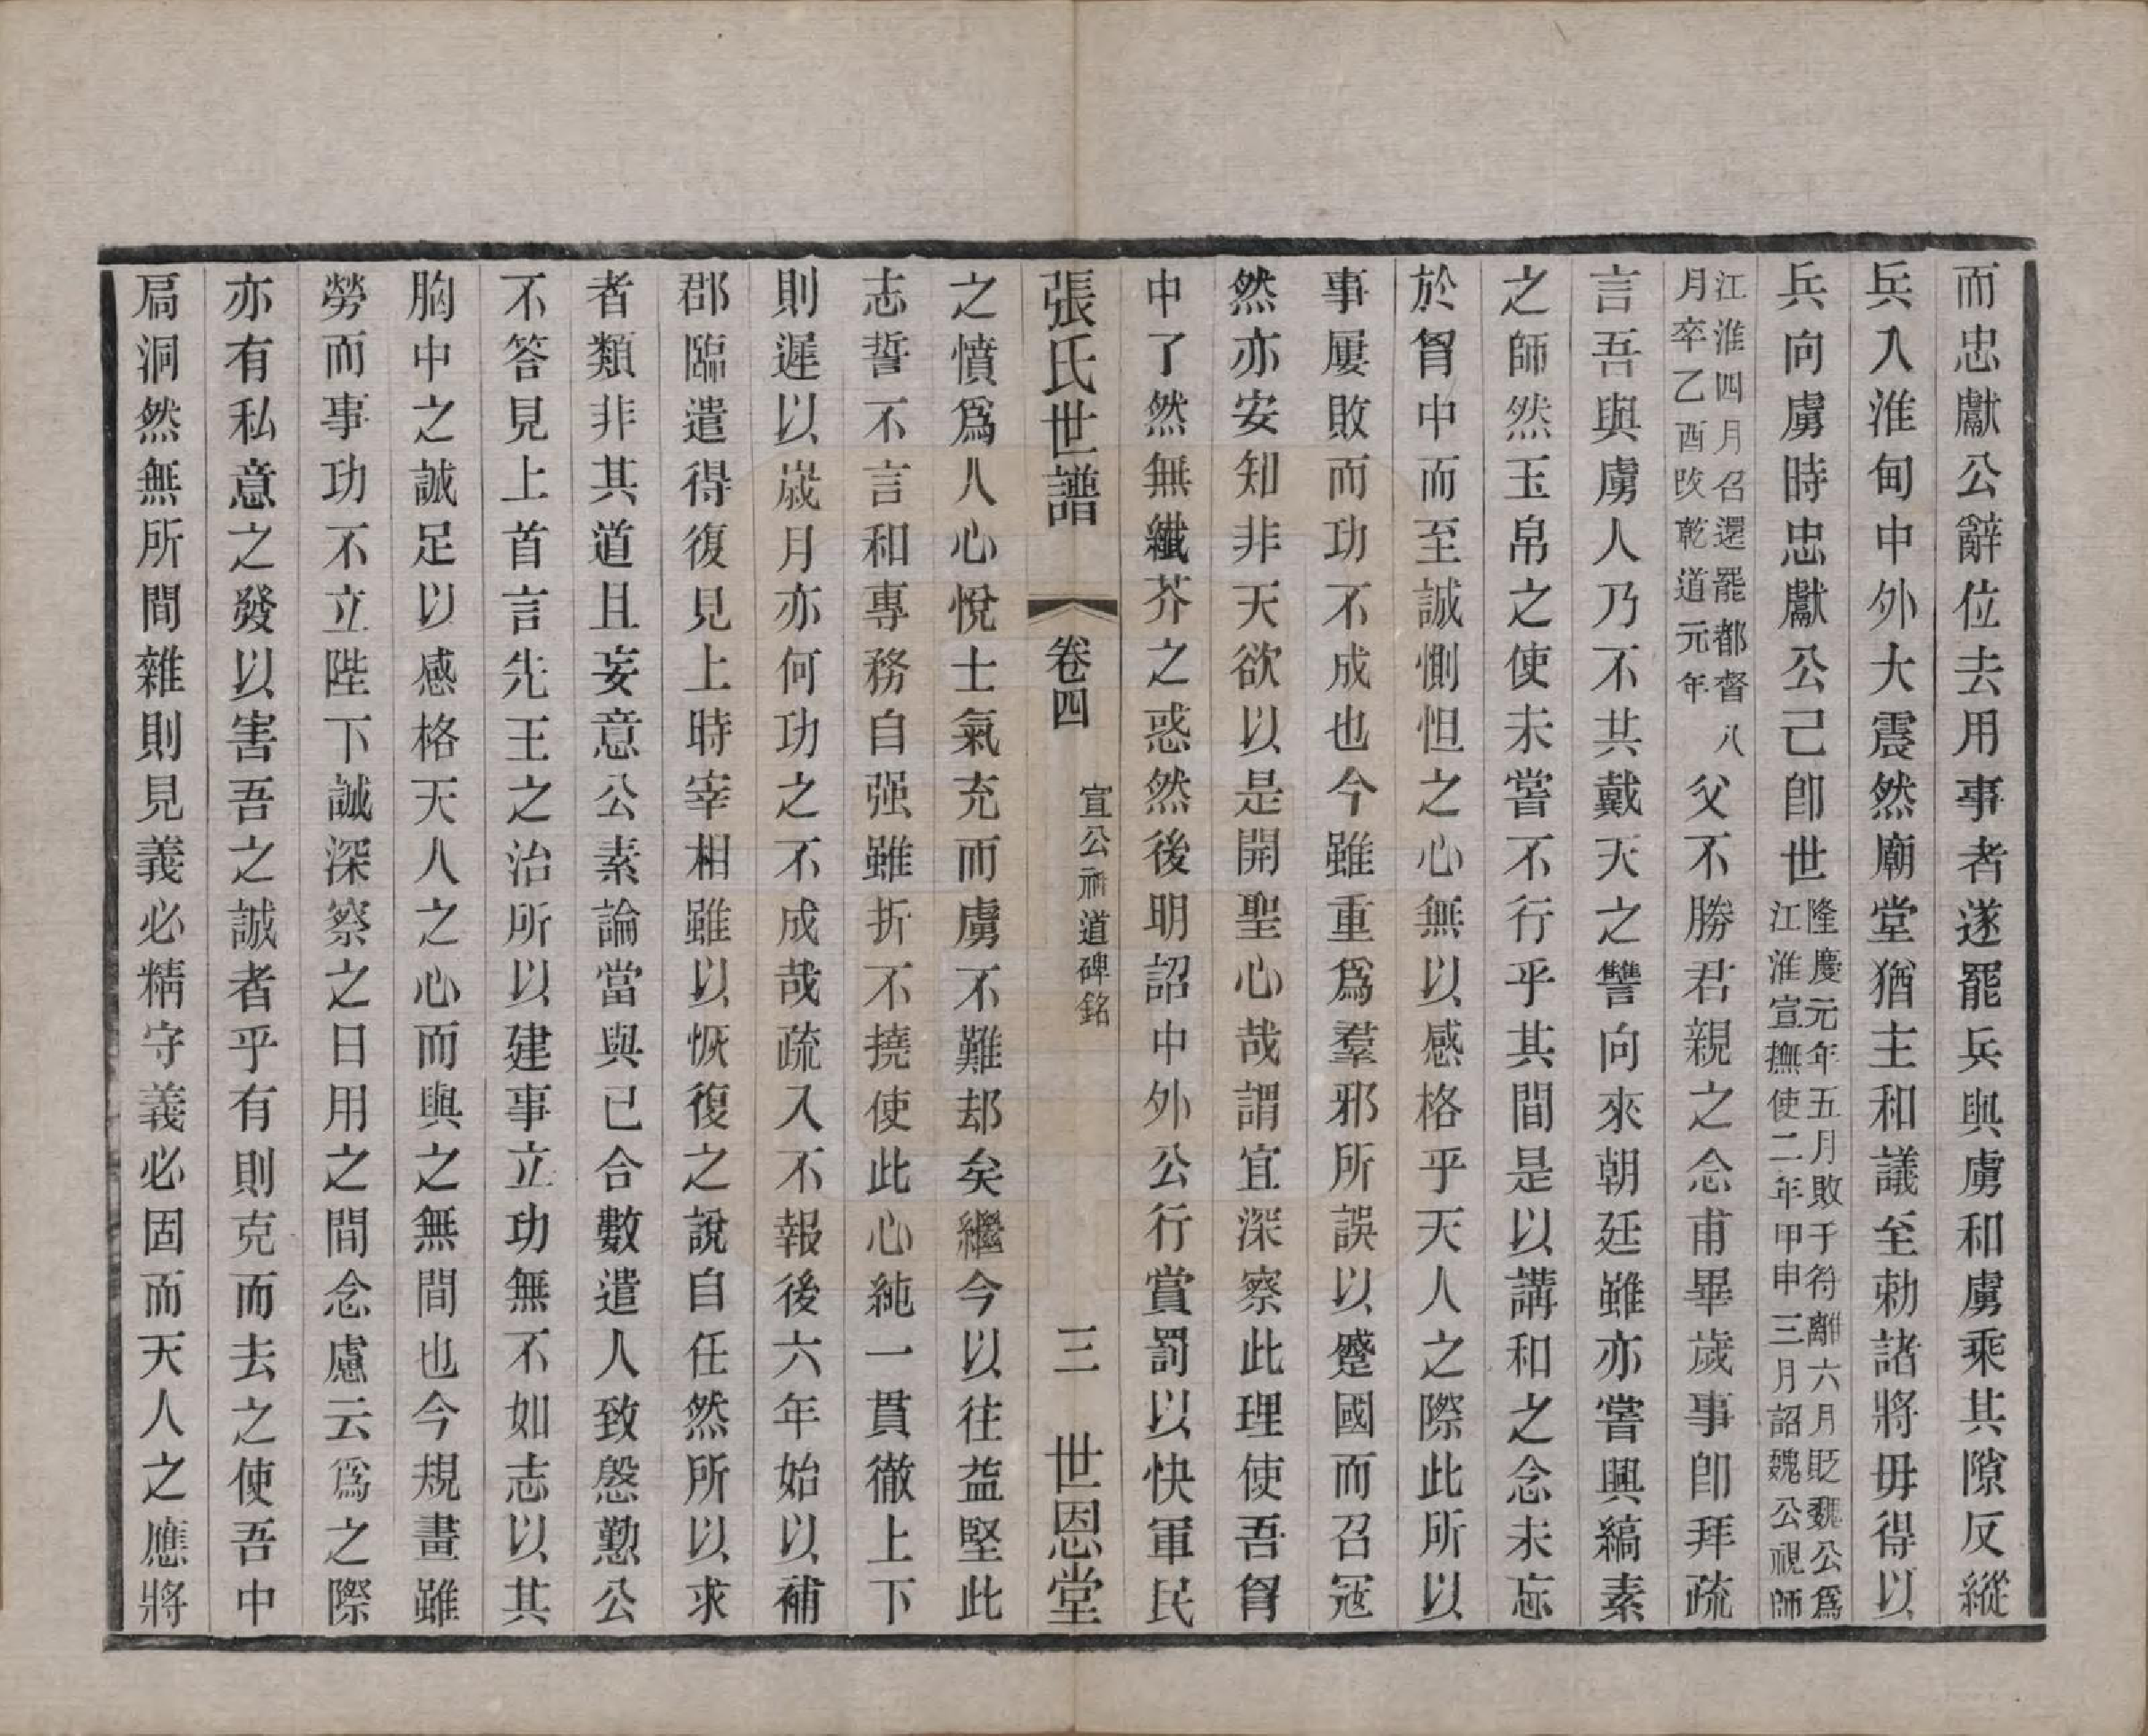 而忠獻公辭位去用事者遂罷兵與虜和虜乘其隙反縱
兵入淮甸中外大震然廟堂猶主和議至勅諸將毋得以
兵向虜時忠獻公己卽世隆慶元年五月敗于符離六月貶魏公爲
江淮宣撫使二年甲申三月詔魏公視師
江淮四月召還罷都督八
月卒乙酉改乾道元年父不勝君親之念甫畢歲事卽拜疏
言吾與虜人乃不共戴天之讐向來朝廷雖亦嘗興縞素
之師然玉帛之使未嘗不行乎其間是以講和之念未忘
於胷中而至誠惻怛之心無以感格乎天人之際此所以
事屢敗而功不成也今雖重爲羣邪所誤以蹙國而召寇
然亦安知非天欲以是開聖心哉謂宜深察此理使吾胷
中了然無纖芥之惑然後明詔中外公行賞罰以快軍民
張氏世譜 卷四 宣公神道碑銘 三 世恩堂
之憤爲人心悅士氣充而虜不難却矣繼今以往益堅此
志誓不言和專務自强雖折不撓使此心純一貫徹上下
則遲以歲月亦何功之不成哉疏入不報後六年始以補
郡臨遣得復見上時宰相雖以恢復之說自任然所以求
者類非其道且妄意公素論當與已合數遣人致慇懃公
不答見上首言先王之治所以建事立功無不如志以其
胸中之誠足以感格天人之心而與之無間也今規畫雖
勞而事功不立陛下誠深察之日用之間念慮云爲之際
亦有私意之發以害吾之誠者乎有則克而去之使吾中
扃洞然無所間雜則見義必精守義必固而天人之應將